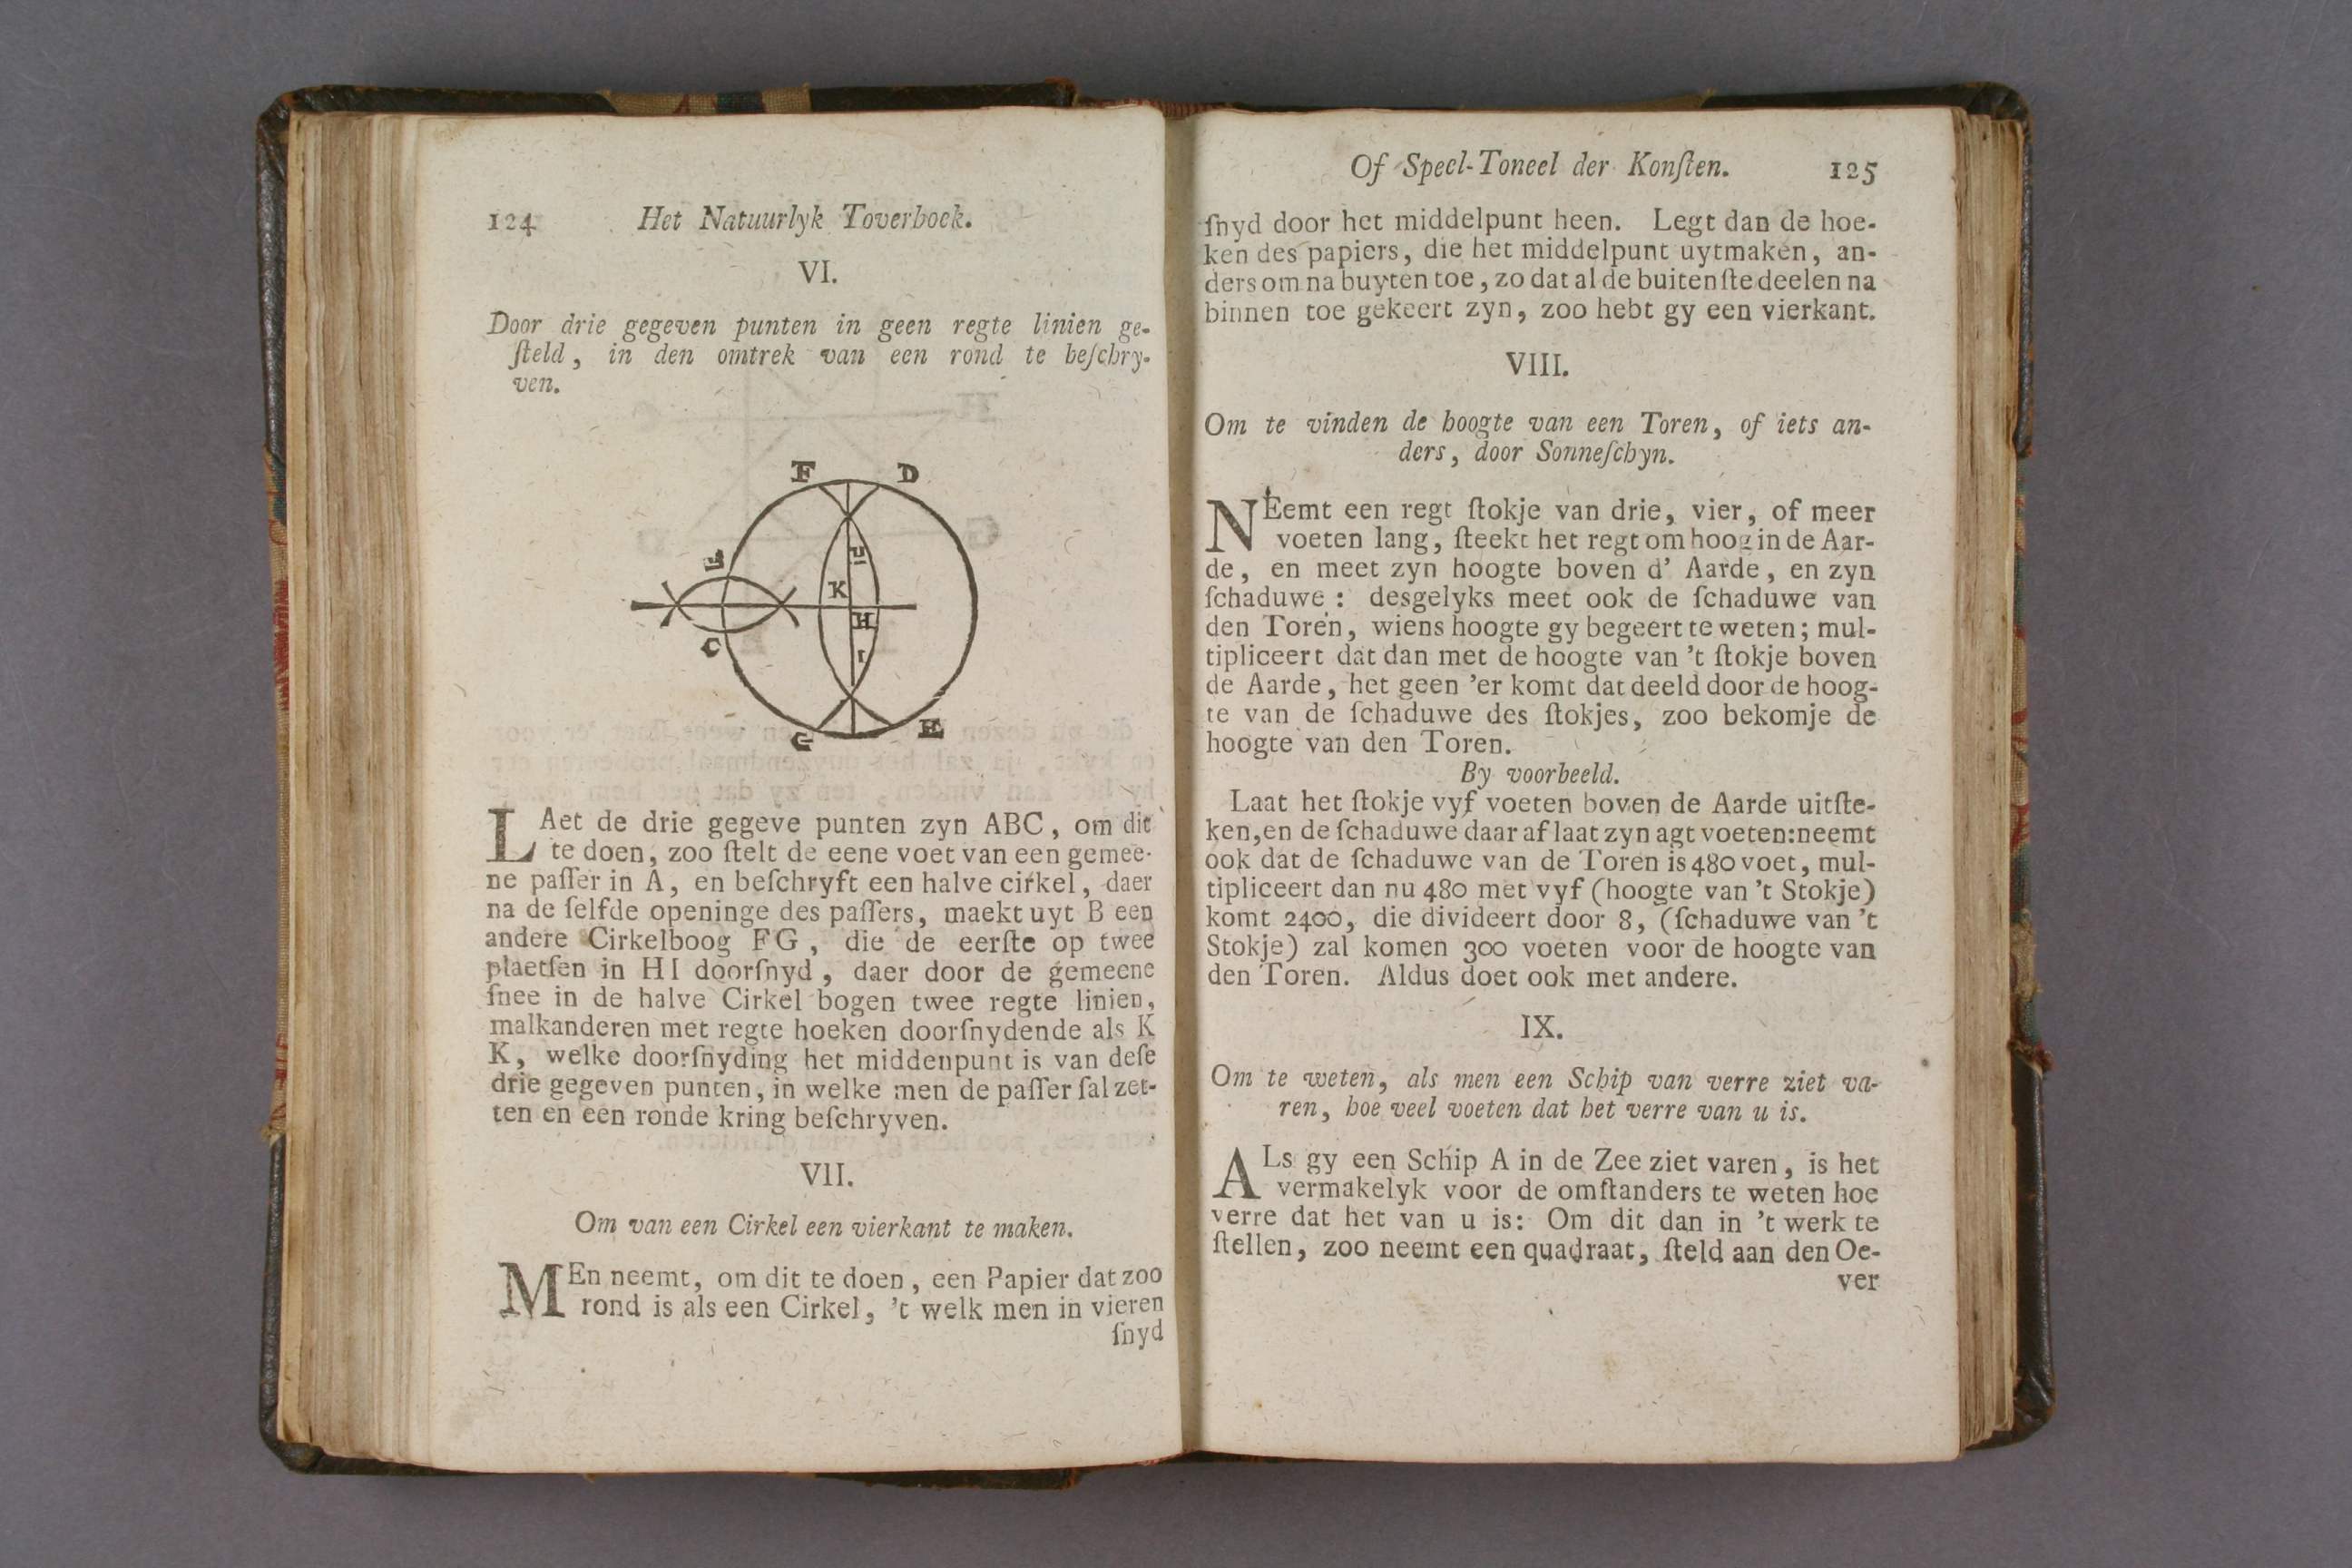 124 Het Natuurlyk Toverboek.
VI.
Door drie gegeven punten in geen regte linien ge-
ſteld, in den omtrek van een rond te beſchry-
ven.
F D
K
H
I
C
G E
LAet de drie gegeve punten zyn ABC, om dit
te doen, zoo ſtelt de eene voet van een gemee-
ne paſſer in A, en beſchryft een halve cirkel, daer
na de ſelfde openinge des paſſers, maekt uyt B een
andere Cirkelboog FG, die de eerſte op twee
plaetſen in HI doorſnyd, daer door de gemeene
ſnee in de halve Cirkel bogen twee regte linien,
malkanderen met regte hoeken doorſnydende als K
K, welke doorſnyding het middenpunt is van deſe
drie gegeven punten, in welke men de paſſer ſal zet-
ten en een ronde kring beſchryven.
VII.
Om van een Cirkel een vierkant te maken.
MEn neemt, om dit te doen, een Papier dat zoo
rond is als een Cirkel, 't welk men in vieren
ſnyd
Of Speel-Toneel der Konſten. 125
ſnyd door het middelpunt heen. Legt dan de hoe-
ken des papiers, die het middelpunt uytmaken, an-
ders om na buyten toe, zo dat al de buitenſte deelen na
binnen toe gekeert zyn, zoo hebt gy een vierkant.
VIII.
Om te vinden de hoogte van een Toren, of iets an-
ders, door Sonneſchyn.
NEemt een regt ſtokje van drie, vier, of meer
voeten lang, ſteekt het regt om hoog in de Aar-
de, en meet zyn hoogte boven d' Aarde, en zyn
ſchaduwe: desgelyks meet ook de ſchaduwe van
den Toren, wiens hoogte gy begeert te weten; mul-
tipliceert dat dan met de hoogte van 't ſtokje boven
de Aarde, het geen 'er komt dat deeld door de hoog-
te van de ſchaduwe des ſtokjes, zoo bekomje de
hoogte van den Toren.
By voorbeeld.
Laat het ſtokje vyf voeten boven de Aarde uitſte-
ken, en de ſchaduwe daar af laat zyn agt voeten: neemt
ook dat de ſchaduwe van de Toren is 480 voet, mul-
tipliceert dan nu 480 met vyf (hoogte van 't Stokje)
komt 2400, die divideert door 8, (ſchaduwe van 't
Stokje) zal komen 300 voeten voor de hoogte van
den Toren. Aldus doet ook met andere.
IX.
Om te weten, als men een Schip van verre ziet va-
ren, hoe veel voeten dat het verre van u is.
ALs gy een Schip A in de Zee ziet varen, is het
vermakelyk voor de omſtanders te weten hoe
verre dat het van u is: Om dit dan in 't werk te
ſtellen, zoo neemt een quadraat, ſteld aan den Oe-
ver